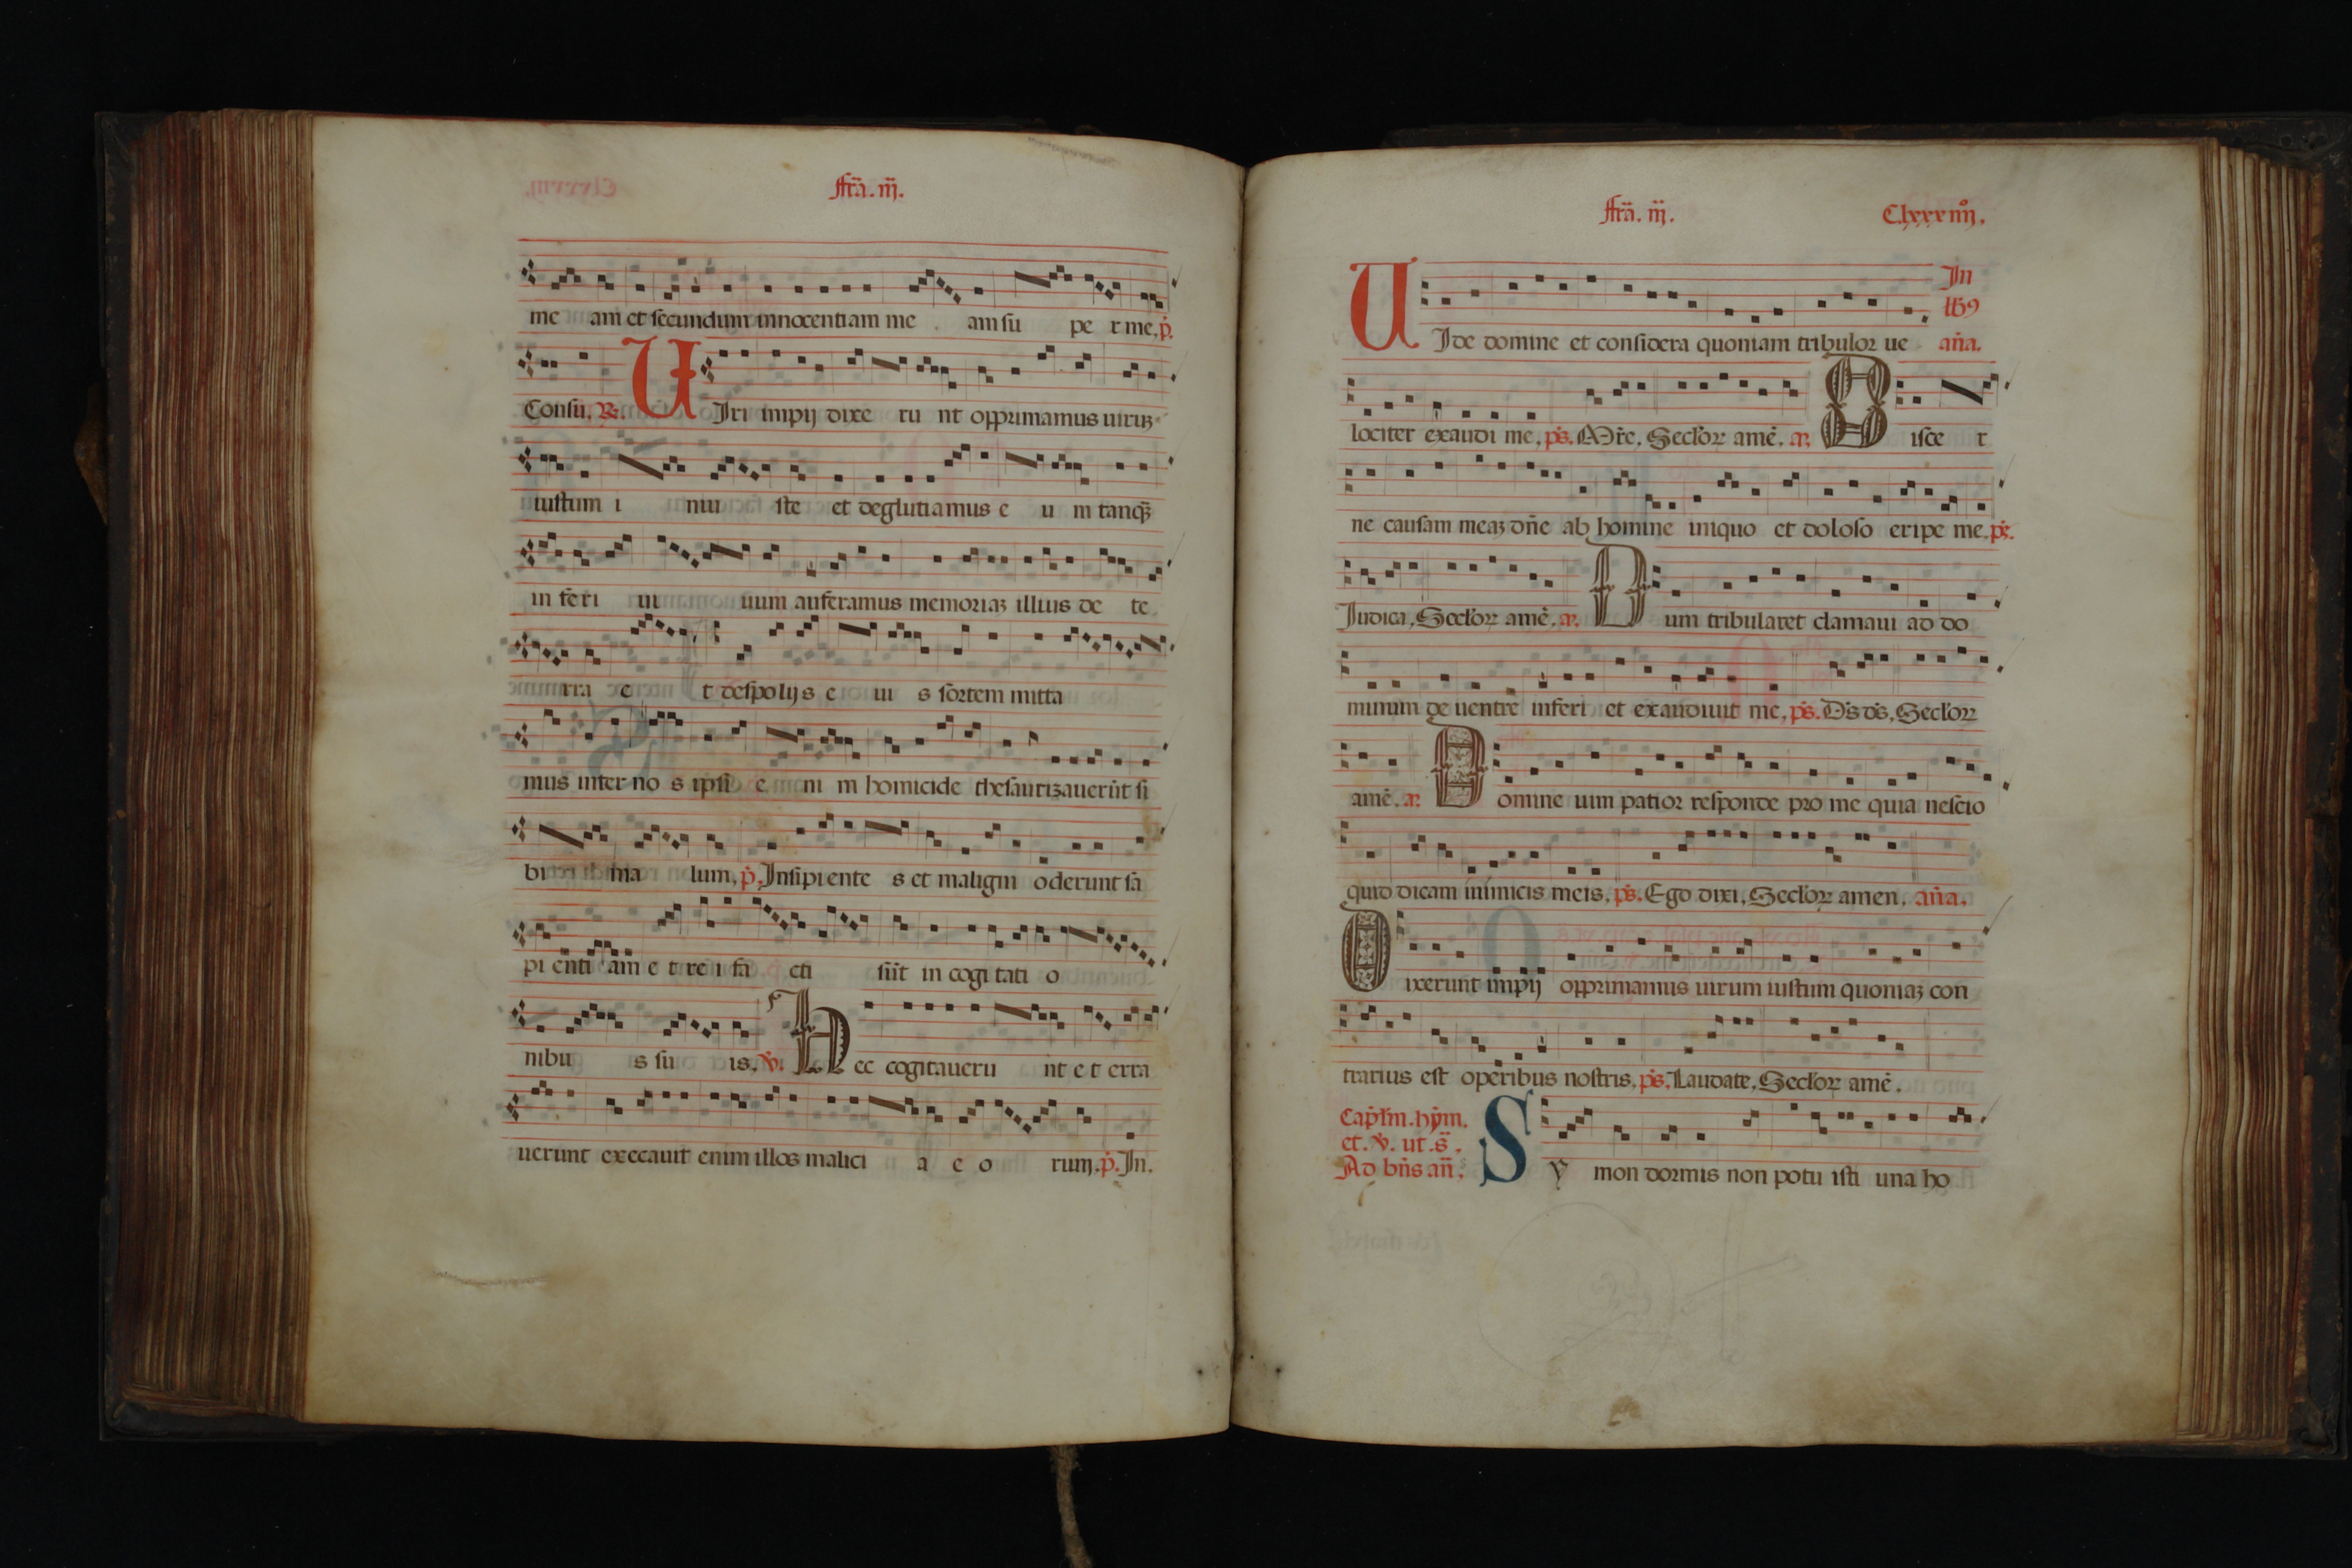 ffrã. iij.
me am et secundum innocentiam me am su pe r me, p̃.
Consu. ℟. UIri impij dixe ru nt opprimamus uiruꝫ
iustum i niu ste et deglutiamus e u m tanqꝫ
in feri ui uum auferamus memoriaꝫ illius de te
rra e t despolijs e iu s sortem mitta
mus inter no s ipsi e ni m homicide thesaurizauerũt si
bi ma lum, p̃. Insipiente s et maligni oderunt sa
pi enti am e t re i fa cti sũt in cogi tati o
nibu s su is. ℣. Hec cogitaueru nt e t erra
uerunt execauit enim illos malici a e o rum. p̃. In.
ffrã. iij. Clxxxiiij.
UIde domine et considera quoniam tribulor ue
In
lb9
aña.
lociter exaudi me, ps. Mr̃e, Seclorꝝ amẽ. a. Disce r
ne causam meaꝫ dñe ab homine iniquo et doloso eripe me. ps.
Iudica, Seclorꝝ amẽ. a. Dum tribularet clamaui ad do
minum de uentre inferi et exaudiuit me, ps. Ds ds, Seclorꝝ
amẽ. a. Domine uim patior responde pro me quia nescio
quid dicam inimicis meis, ps. Ego dixi, Seclorꝝ amen, aña.
Dixerunt impij opprimamus uirum iustum quoniaꝫ con
trarius est operibus nostris, ps. Laudate, Seclorꝝ amẽ.
Capl̃m. hym.
et. ℣. ut. s̃.
Ad bñs añ.
Sy mon dormis non potu isti una ho